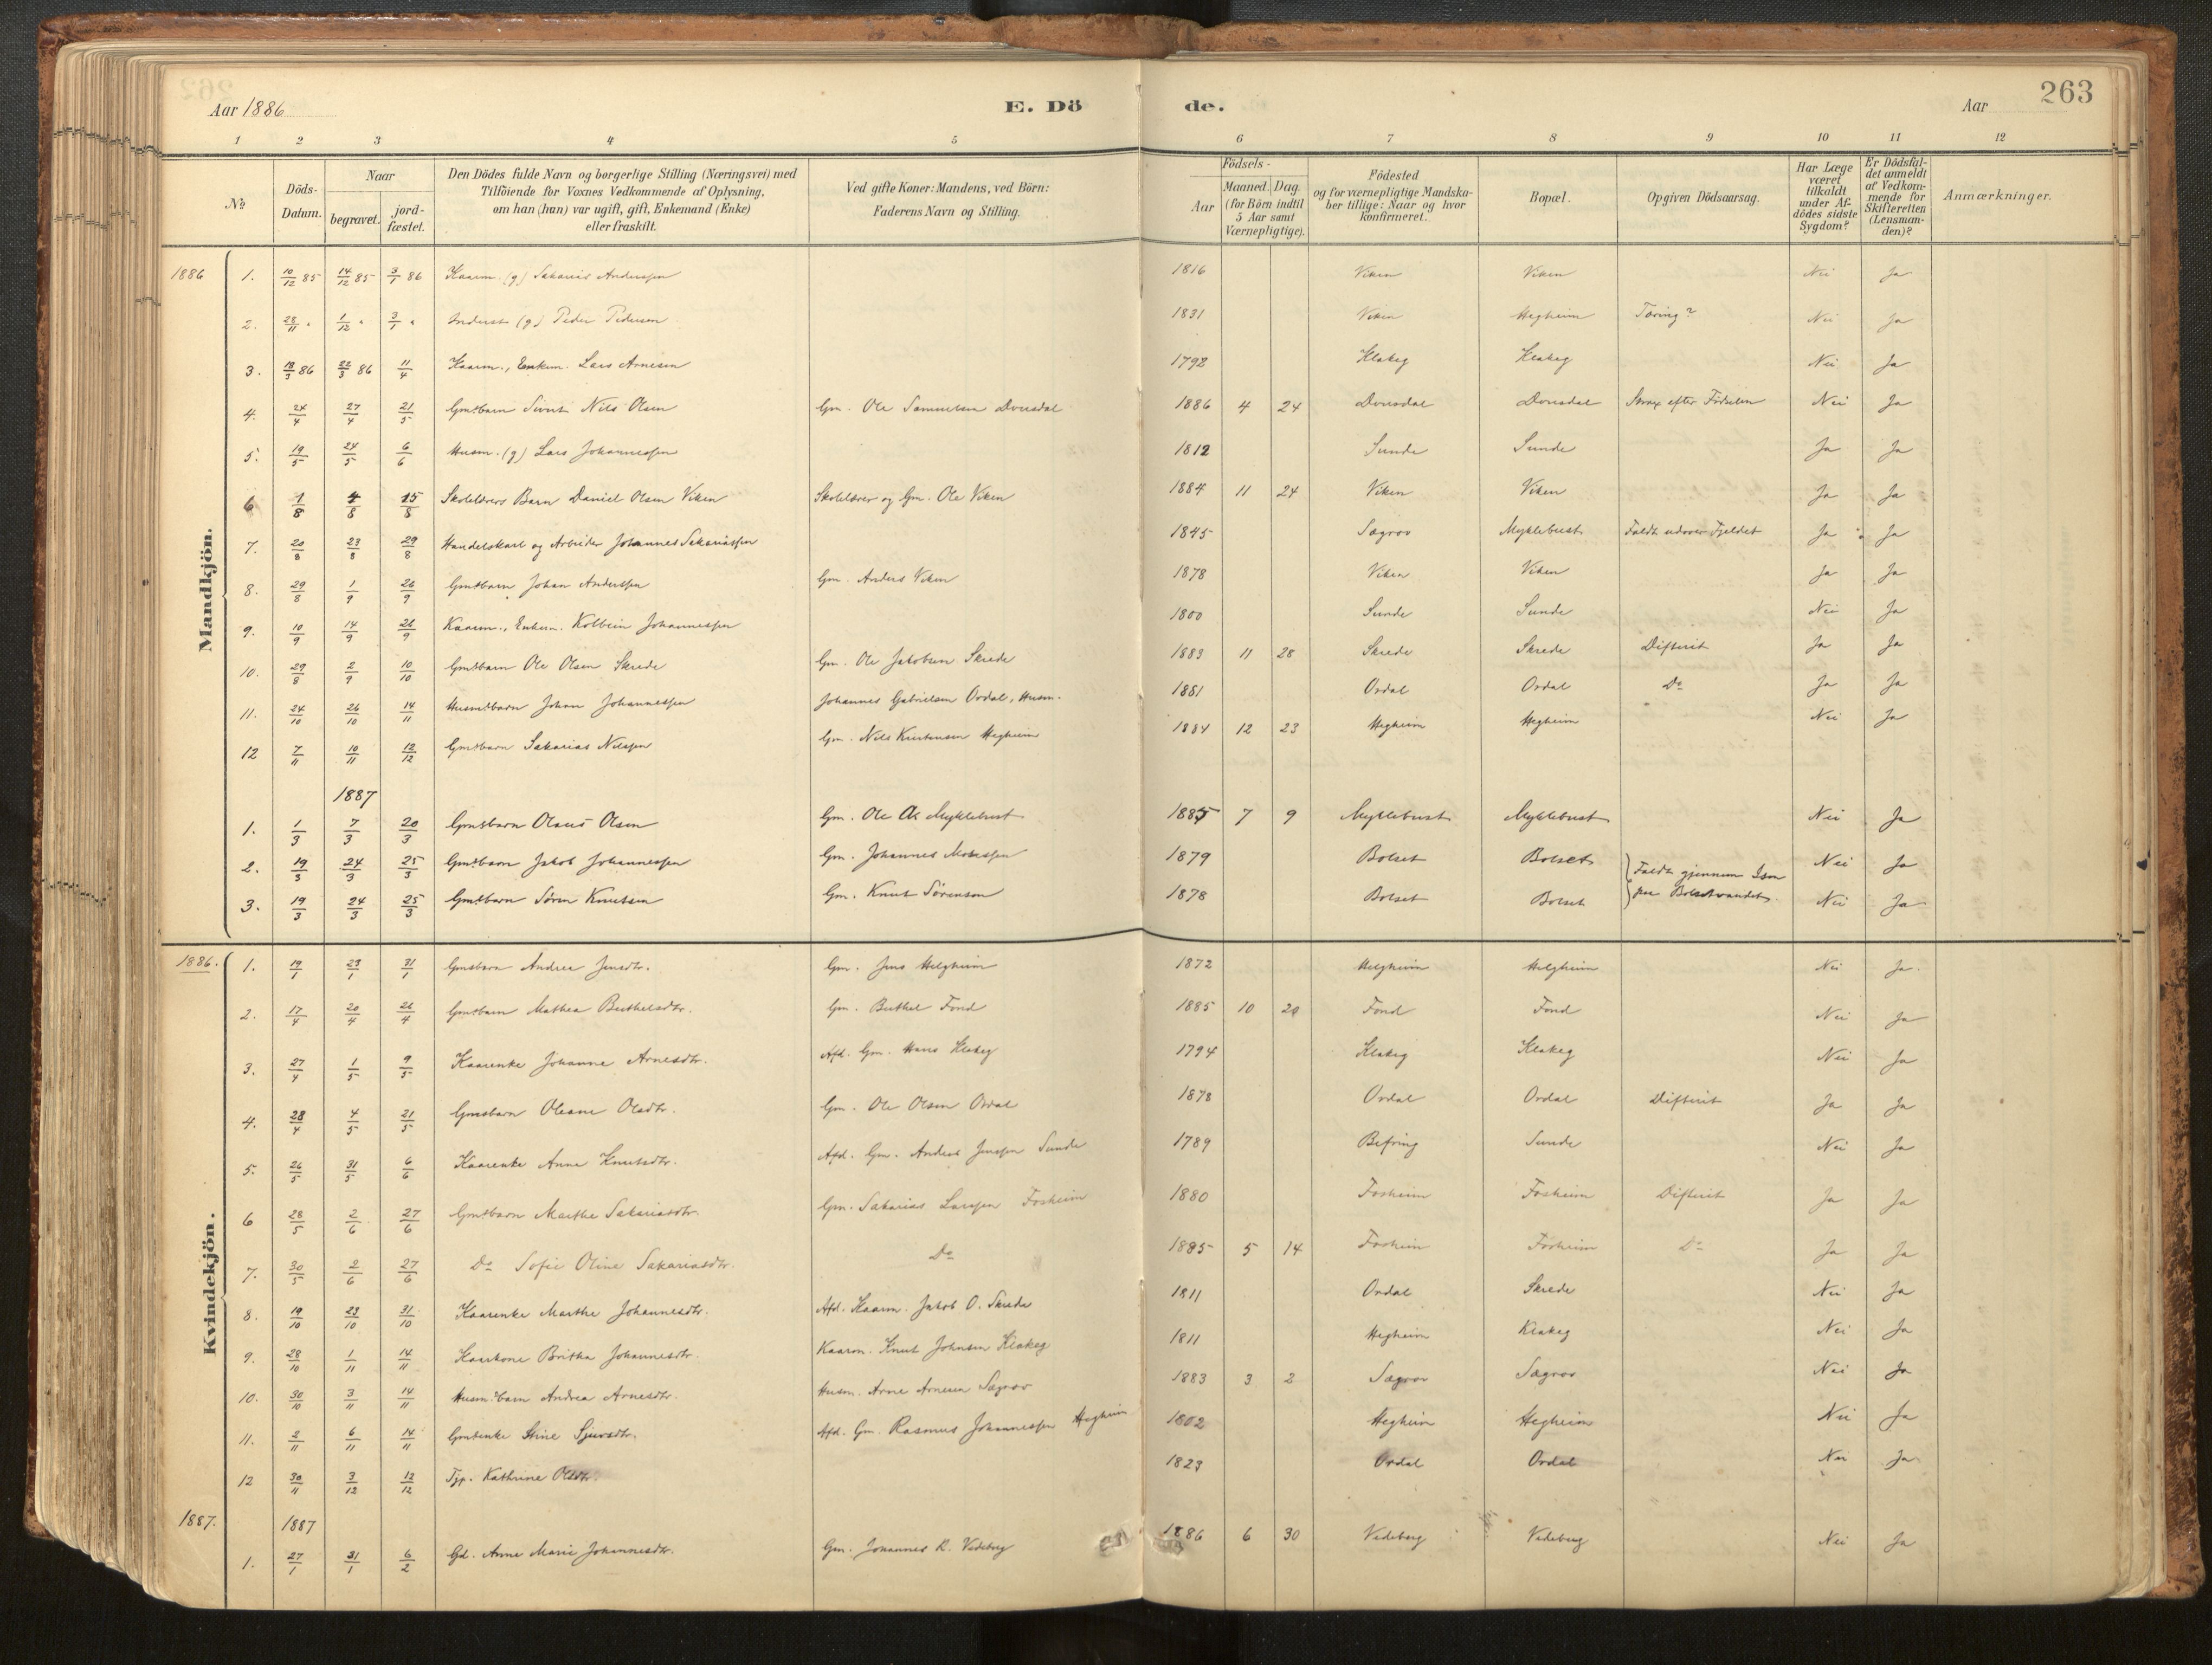 263
Aar 1886
E. Dö de.
Aar
1 2 3 4 5 6 7 8 9 10 11 12
No
Döds-Datum.
Naar
begravet.
jord-fæstet.
Den Dödes fulde Navn og borgerlige Stilling (Næringsvei) med
Tilföiende for Voxnes Vedkommende af Oplysning,
om han (hun) var ugift, gift, Enkemand (Enke)
eller fraskilt.
Ved gifte Koner: Mandens, ved Börn:
Faderens Navn og Stilling.
Födsels-
Aar
Maaned. Dag.
(for Börn indtil
5 Aar samt
Værnepligtige).
Födested
og for værnepligtige Mandska-
ber tillige: Naar og hvor
konfirmeret.
Bopæl.
Opgiven Dödsaarsag.
Har Læge
været
tilkaldt
under Af-
dödes sidste
Sygdom?
Er Dödsfal-
det anmeldt
af Vedkom-
mende for
Skifteretten
(Lensman-
den)?
Anmærkninger.
Mandkjön.
1886 1. 10/12 85 14/12 85 3/1 86 Kaarm. (g) Sakarias Anderssen 1816 Viken Viken Nei Ja
2. 28/11 " 1/12 " 3/1 " Inderst (g) Peder Pedersen 1831 Viken Hegheim Tæring? Nei Ja
3. 18/3 86 22/3 86 11/4 Kaarm., Enkem. Lars Arnesen 1792 Klakeg Klakeg Nei Ja
4. 24/4 27/4 21/5 Gmsbarn Sivert Nils Olsen Gm. Ole Samuelsen Dvusdal 1886 4 24 Dvusdal Dvusdal Strax efter Fødselen Nei Ja
5. 19/5 24/5 6/6 Husm. (g) Lars Johannessen 1812 Sunde Sunde Ja Ja
6 1/8 4/8 15/8 Skolelærers Barn Daniel Olsen Viken Skolelærer og Gm. Ole Viken 1884 11 24 Viken Viken Ja Ja
7. 20/8 23/8 29/8 Handelskarl og Arbeider Johannes Sakariassen 1845 Sægrov Myklebust Faldt udover Fjeldet Ja Ja
8. 29/8 1/9 26/9 Gmsbarn Johan Anderssen Gm. Anders Viken 1878 Viken Viken Ja Ja
9. 10/9 14/9 26/9 Kaarm., Enkem. Kolbein Johannessen 1800 Sunde Sunde Nei Ja
10. 29/8 2/9 10/10 Gmsbarn Ole Olsen Skrede Gm. Ole Jakobsen Skrede 1883 11 28 Skrede Skrede Difterit Ja Ja
11. 24/10 26/10 14/11 Husmsbarn Johan Johannessen Johannes Gabrielsen Ordal, Husm. 1881 Ordal Ordal Do Ja Ja
12 7/11 10/11 12/12 Gmsbarn Sakarias Nilssen Gm. Nils Kristensen Hegheim 1884 12 23 Hegheim Hegheim Nei Ja
1887
1. 1/3 7/3 20/3 Gmsbarn Olaus Olsen Gm. Ole Myklebust 1885 7 9 Myklebust Myklebust Nei Ja
2. 19/3 24/3 25/3 Gmsbarn Jakob Johannessen Gm. Johannes Mosessen 1879 Bolset Bolset Faldt gjennem Isen Nei Ja
3. 19/3 24/3 25/3 Gmsbarn Søren Knutsen Gm. Knut Sørensen 1878 Bolset Bolset paa Bolsetvandet. Nei Ja
Kvindekjön.
1886. 1. 19/1 23/1 31/1 Gmsbarn Andrea Jensdtr. Gm. Jens Helgheim 1872 Helgheim Helgheim Nei Ja
2. 17/4 20/4 26/4 Gmsbarn Mathea Berthelsdtr. Gm. Berthel Fond 1885 10 20 Fond Fond Nei Ja
3. 27/4 1/5 9/5 Kaarenke Johanne Arnesdtr. Afd. Gm. Hans Klakeg 1794 Klakeg Klakeg Nei Ja
4. 28/4 4/5 21/5 Gmsbarn Oleane Olsdtr. Gm. Ole Olsen Ordal 1878 Ordal Ordal Difterit Ja Ja
5. 26/5 31/5 6/6 Kaarenke Anna Knutsdtr. Afd. Gm. Anders Jenssen Sunde 1789 Befring Sunde Nei Ja
6 28/5 2/6 27/6 Gmsbarn Marthe Sakariasdtr. Gm. Sakarias Larssen Fosheim 1880 Fosheim Fosheim Difterit Ja Ja
7. 30/5 2/6 27/6 Do Sofie Oline Sakariasdtr. Do 1885 5 14 Fosheim Fosheim Do Ja Ja
8. 19/10 23/10 31/10 Kaarenke Marthe Johannesdtr. Afd. Kaarm. Jakob O. Skrede 1811 Ordal Skrede Nei Ja
9. 28/10 1/11 14/11 Kaarkone Britha Johannesdtr. Kaarm. Knut Johnsen Klakeg 1811 Hegheim Klakeg Nei Ja
10. 30/10 3/11 14/11 Husm.barn Andrea Arnesdtr. Husm. Arne Arnesen Sægrov 1883 3 2 Sægrov Sægrov Nei Ja
11. 2/11 6/11 14/11 Gmsenke Stine Sjursdtr. Afd. Gm. Rasmus Johannessen Hegheim 1802 Hegheim Hegheim Nei Ja
12 30/11 3/12 12/12 Tjp. Kathrine Olsdtr. 1823 Ordal Ordal Nei Ja
1887. 1887
1. 27/1 31/1 6/2 Gd. Anne Marie Johannesdtr. Gm. Johannes R. Vedeberg 1886 6 30 Vedeberg Vedeberg Nei Ja